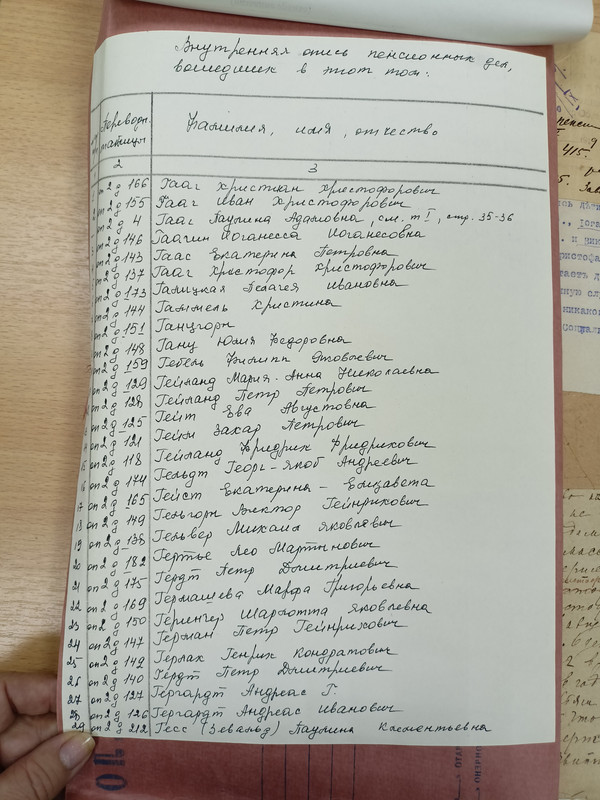 Внутренняя опись пенсионных дел,
вошедших в этот том:
Переводн. таблицы
Фамилия, имя, отчество
2 3
оп 2 д 166 Гааг Христиан Христофорович
оп 2 д 155 Гааг Иван Христофорович
оп 2 д 4 Гааг Паулина Адамовна, см. т I, стр. 35-36
оп 2 д 146 Гаагин Иоганесса Иоганесовна
оп 2 д 143 Гаас Екатерина Петровна
оп 2 д 137 Гааг Христофор Христофорович
оп 2 д 173 Галицкая Пелагея Ивановна
оп 2 д 144 Гаммель Христина
оп 2 д 151 Ганцгорн
оп 2 д 148 Ганц Юлия Федоровна
оп 2 д 159 Гебель Филипп Яковлевич
оп 2 д 129 Гейланд Мария-Анна Николаевна
оп 2 д 128 Гейланд Петр Петрович
оп 2 д 125 Гейт Ева Августовна
оп 2 д 121 Гейм Захар Петрович
15 оп 2 д 118 Гейланд Фридрих Фридрихович
16 оп 2 д 174 Гельдт Георг-Якоб Андреевич
17 оп 2 д 165 Гейст Екатерина-Елизавета
18 оп 2 д 149 Гельгорн Виктор Гейнрихович
19 оп 2 д 138 Гельвер Михаил Яковлевич
20 оп 2 д 182 Гертье Лео Мартинович
21 оп 2 д 175 Гердт Петр Дмитриевич
22 оп 2 д 169 Гермашева Марфа Григорьевна
23 оп 2 д 150 Герингер Шарлотта Яковлевна
24 оп 2 д 147 Герман Петр Гейнрихович
25 оп 2 д 142 Герлах Генрих Кондратович
26 оп 2 д 140 Гердт Петр Дмитриевич
27 оп 2 д 127 Гергардт Андреас Г.
28 оп 2 д 126 Гергардт Андреас Иванович
29 оп 2 д 212 Гесс (Зевальд) Паулина Климентьевна